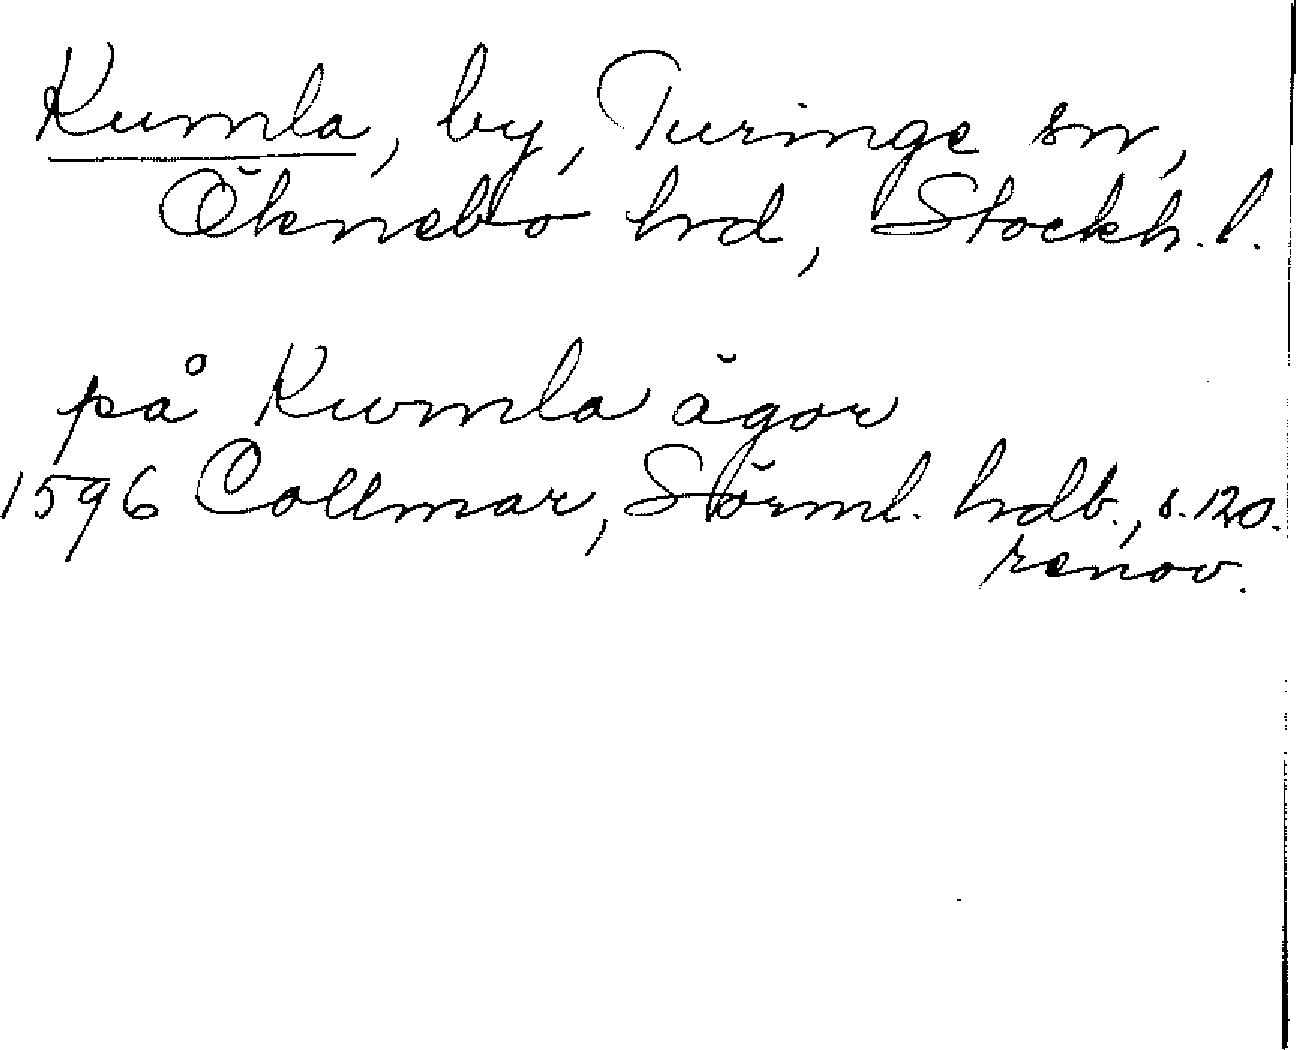 Kumla, by, Turinge sn,
Öknebo hrd, Stockh. l.
på Kumla ägor
1596 Collmar, Sörml. hdb., s. 120.
renov.